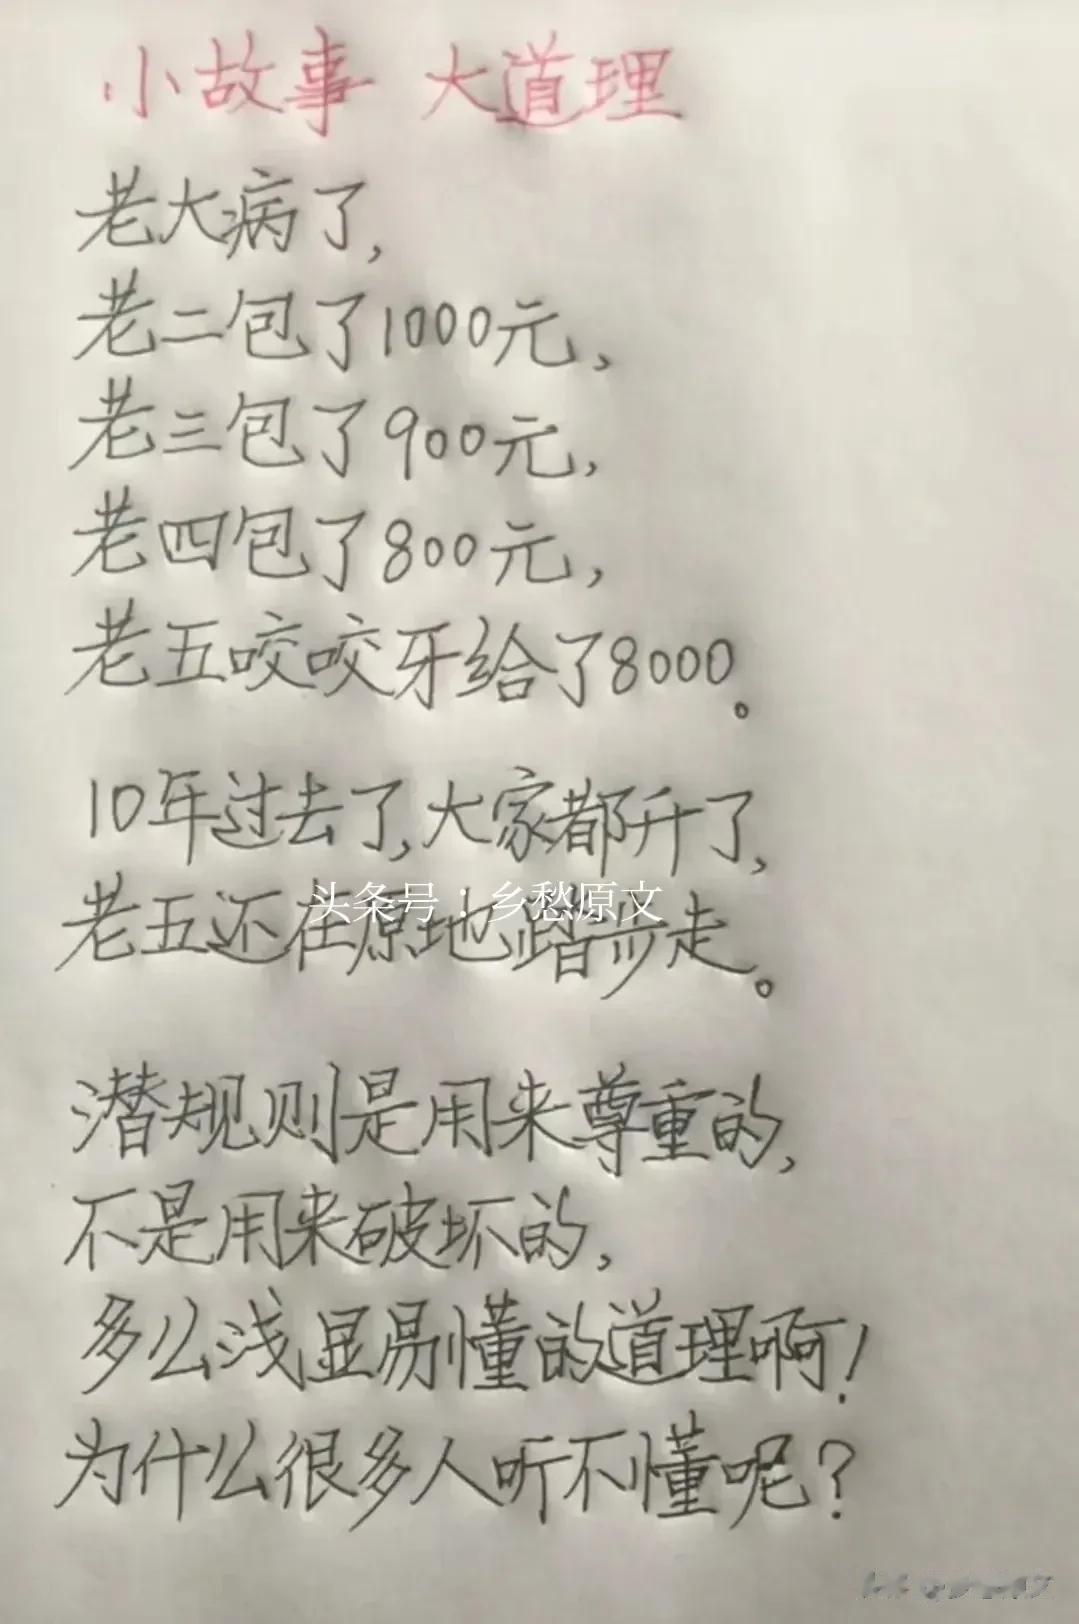 小故事 大道理
老大病了,
老二包了1000元,
老三包了900元,
老四包了800元,
老五咬咬牙给了8000。
10年过去了,大家都升了,
头条号：乡愁原文
老五还在原地踏步走。
潜规则是用来尊重的,
不是用来破坏的,
多么浅显易懂的道理啊!
为什么很多人听不懂呢?